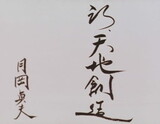 祝・天地創造
月岡貞夫